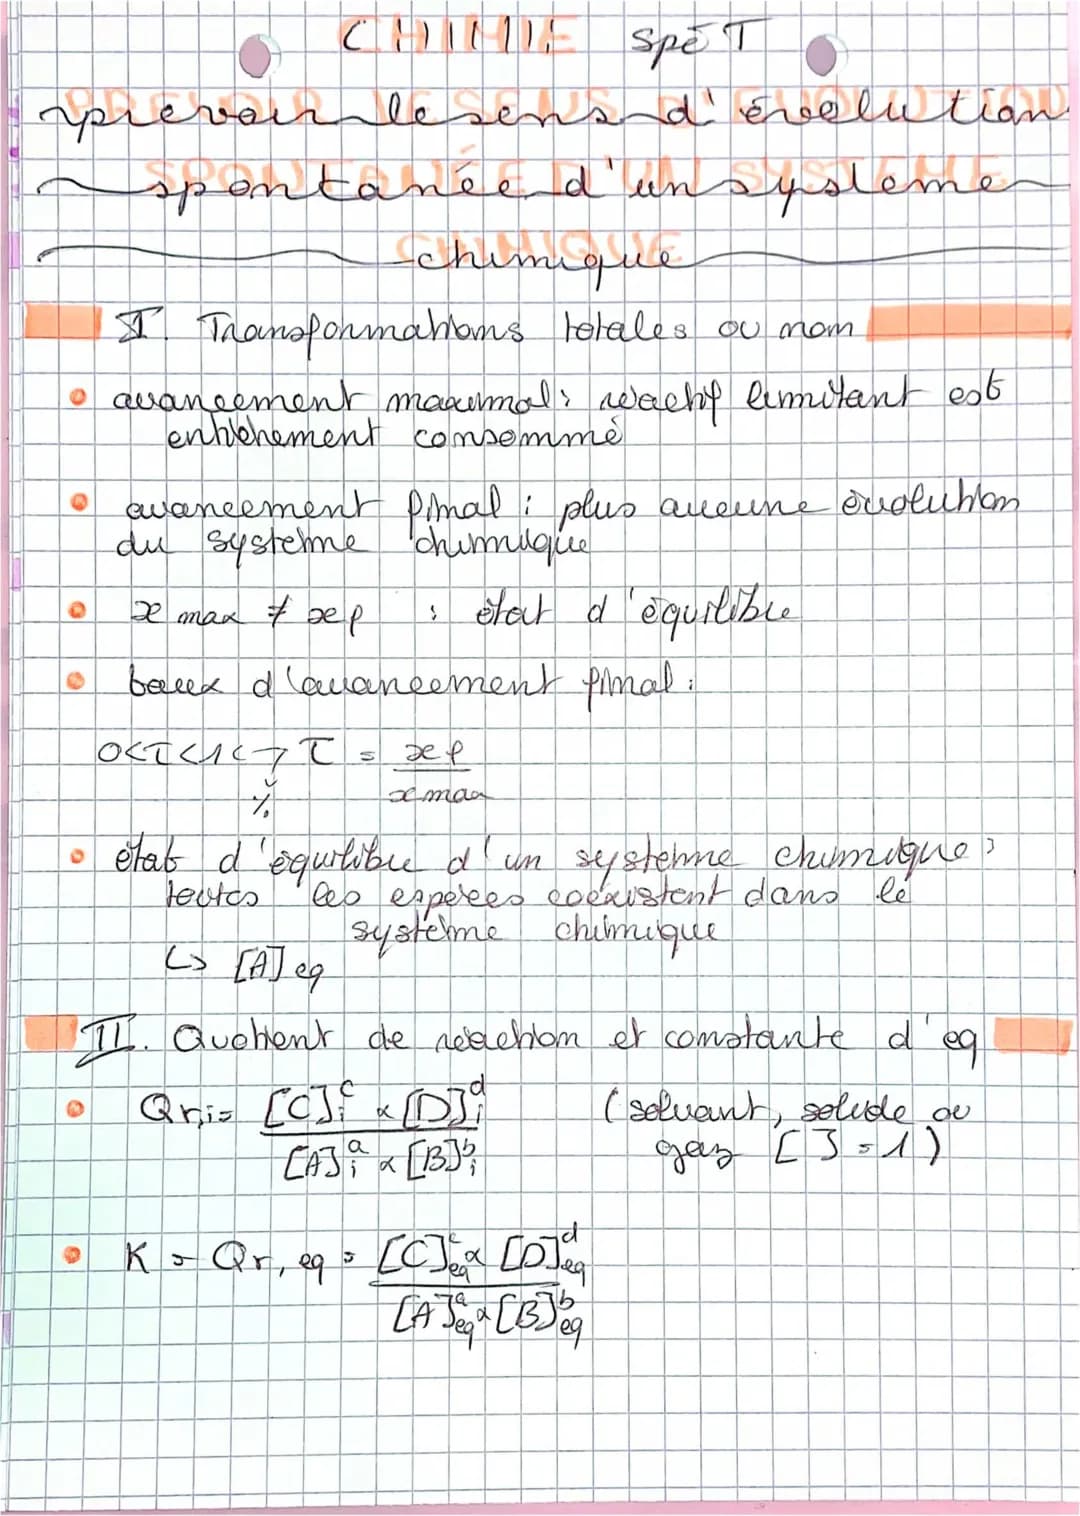 CHIMIE spé T
prévoir le sens d'évolution
spontanée d'un système
chimique
I. Transformations totales ou non
avancement maximal : réactif limitant est
entièrement consommé
avancement final : plus aucune évolution
du système chimique
x max ≠ xf : état d'équilibre
taux d'avancement final :
0<τ<1 <-> τ = xf / x max
%
état d'équilibre d'un système chimique :
toutes les espèces coexistent dans le
système chimique
↳ [A] eq
II. Quotient de réaction et constante d'eq
Qr,i = [C]ᵢᶜ × [D]ᵢᵈ / [A]ᵢᵃ × [B]ᵢᵇ (solvant, solide ou
gaz [ ] = 1)
K = Qr,eq = [C]eqᶜ × [D]eqᵈ / [A]eqᵃ × [B]eqᵇ